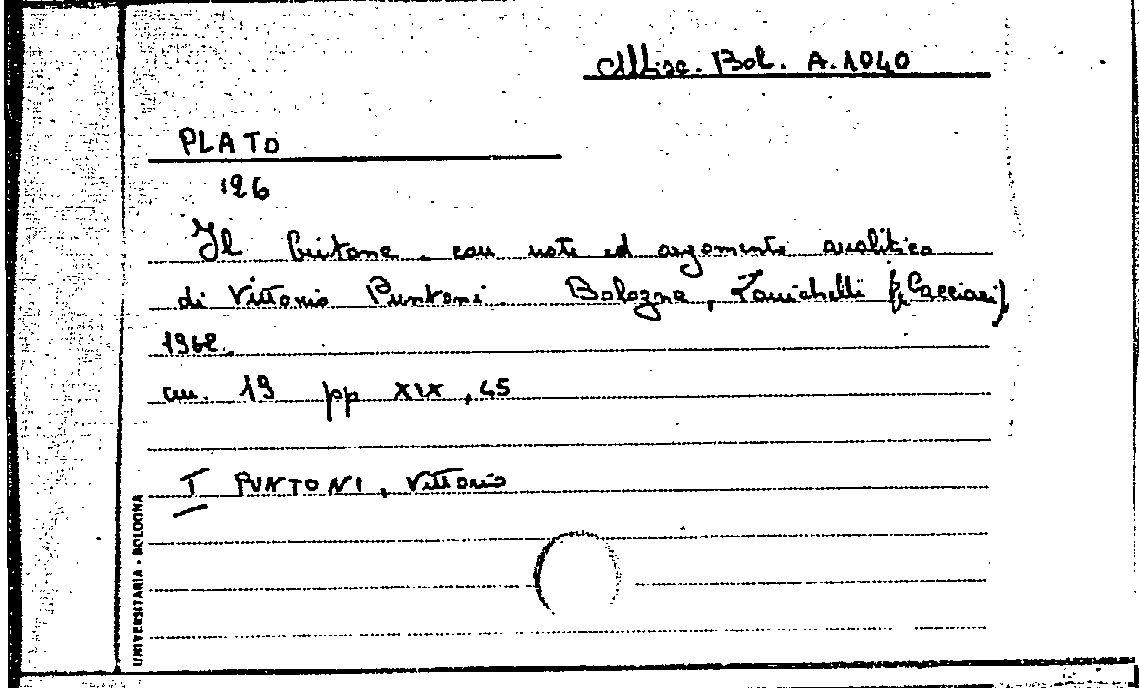 Misc. Bol. A. 1040
PLATO
126
Il Critone. con note ed argomento analitico
di Vittorio Puntoni. Bologna, Zanichelli (Cacciari),
1962.
cm. 19 pp XIX, 45
I PUNTONI, Vittorio
UNIVERSITARIA - BOLOGNA